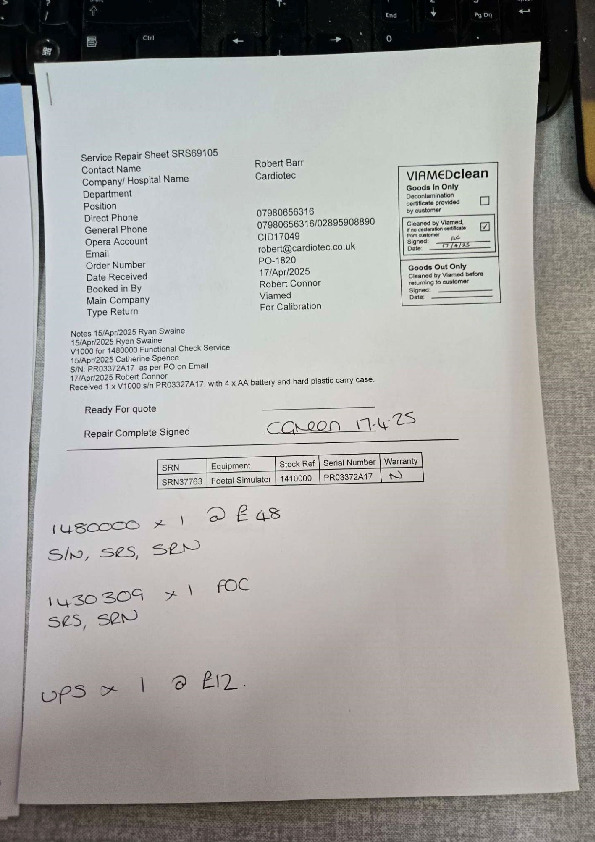 End
Pg Dn
Ctrl
0
Service Repair Sheet SRS69105
Contact Name Robert Barr
Company/ Hospital Name Cardiotec
Department
Position
Direct Phone 07980656316
General Phone 07980656316/02895908890
Opera Account CID17049
Email robert@cardiotec.co.uk
Order Number PO-1820
Date Received 17/Apr/2025
Booked in By Robert Connor
Main Company Viamed
Type Return For Calibration
VIAMEDclean
Goods In Only
Decontamination
certificate provided
by customer
Cleaned by Viamed,
if no declaration certificate
from customer
Signed:
Date: 17/4/25
Goods Out Only
Cleaned by Viamed before
returning to customer
Signed:
Date:
Notes 15/Apr/2025 Ryan Swaine
15/Apr/2025 Ryan Swaine
V1000 for 1480000 Functional Check Service
16/Apr/2025 Catherine Spence
S/N: PR03372A17 as per PO on Email
17/Apr/2025 Robert Connor
Received 1 x V1000 s/n PR03327A17 with 4 x AA battery and hard plastic carry case.
Ready For quote
Repair Complete Signed 17.4.25
SRN Equipment Stock Ref Serial Number Warranty
SRN37763 Foetal Simulator 1410000 PR03372A17 N
1480000 x 1 @ £48
S/N, SRS, SRN
1430309 x 1 FOC
SRS, SRN
UPS x 1 @ £12.